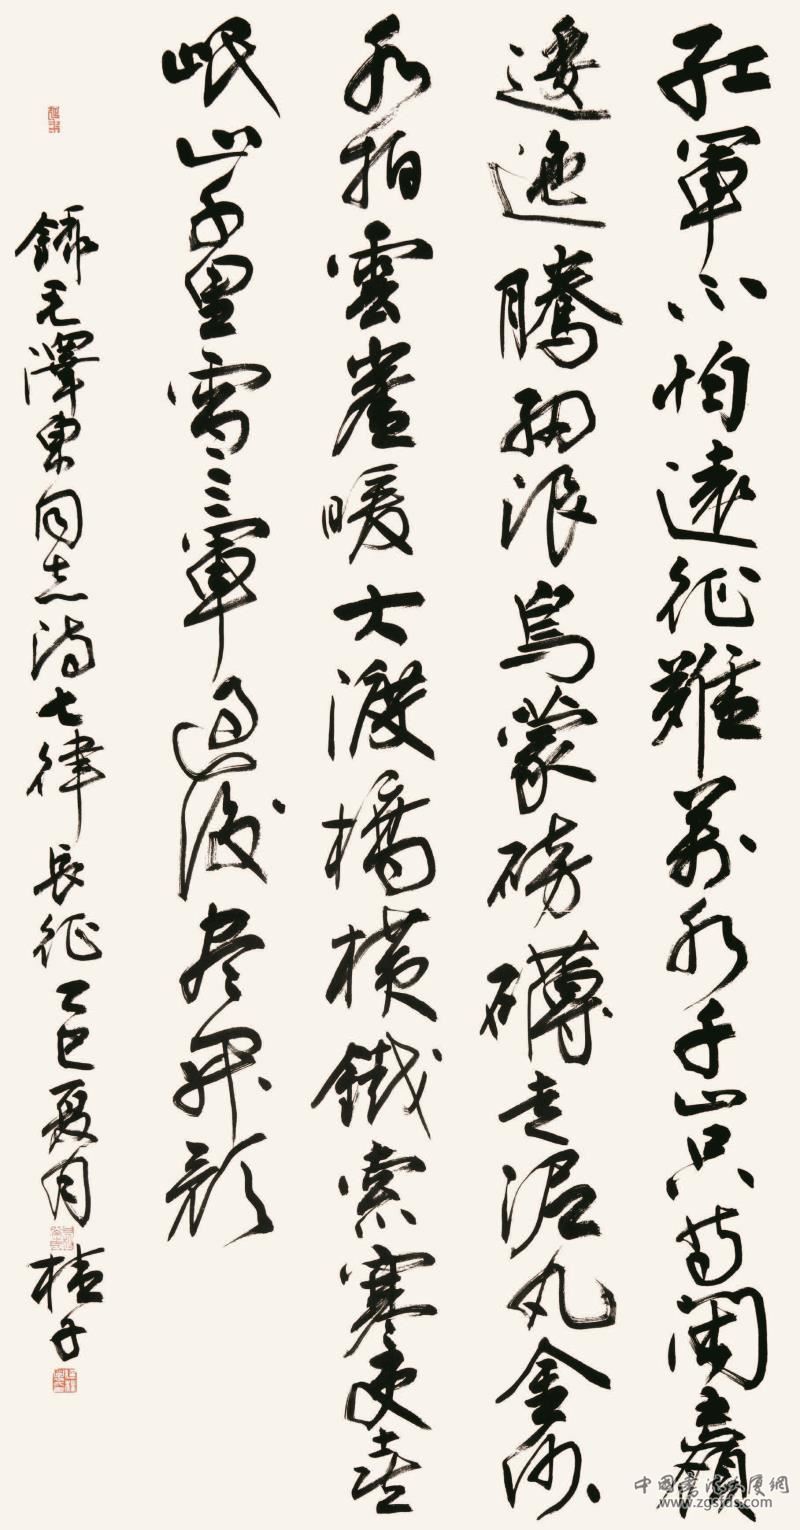 紅軍不怕遠征難萬水千山只等閑五嶺
逶迤騰細浪烏蒙磅礴走泥丸金沙
水拍雲崖暖大渡橋橫鐵索寒更喜
岷山千里雪三軍過後盡開顏
錄毛澤東同志詩七律長征乙巳夏月
中國書法大廈網
www.zgsfds.com